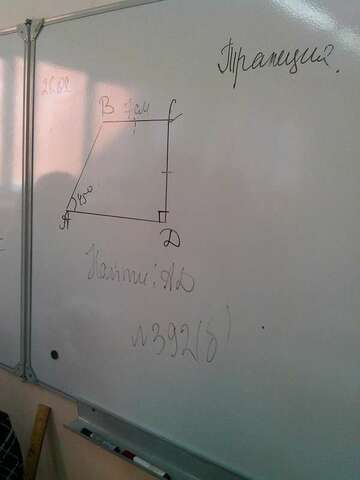 Трапеция.
B 7 см C
45°
A D
Найти: AD
№392(б)